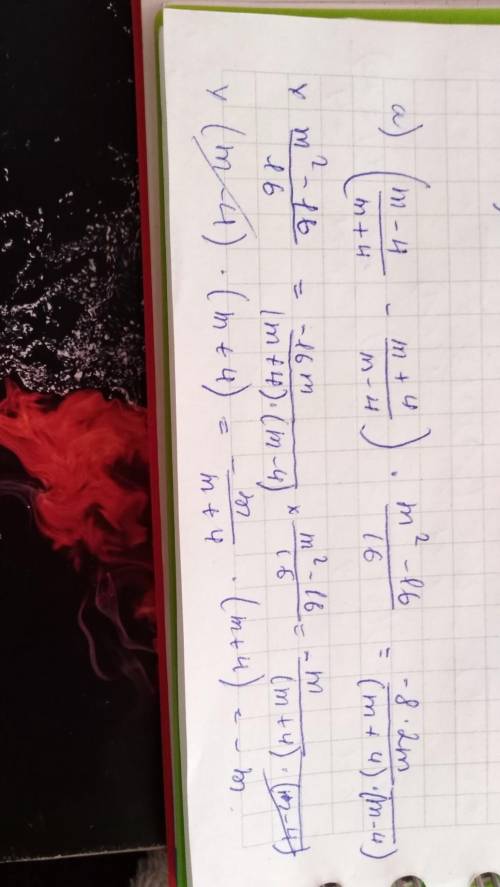 а) ((m-4)/(m+4) - (m+4)/(m-4)) · (m²-16)/16 = (-8·2m)/((m+4)·(m-4))
× (m²-16)/16 = (-16m)/((m+4)·(m-4)) × (m²-16)/16 = (-m)/((m+4)·(m-4))
× (m-4)·(m+4) = (-m)/(m+4) · (m+4) = -m.